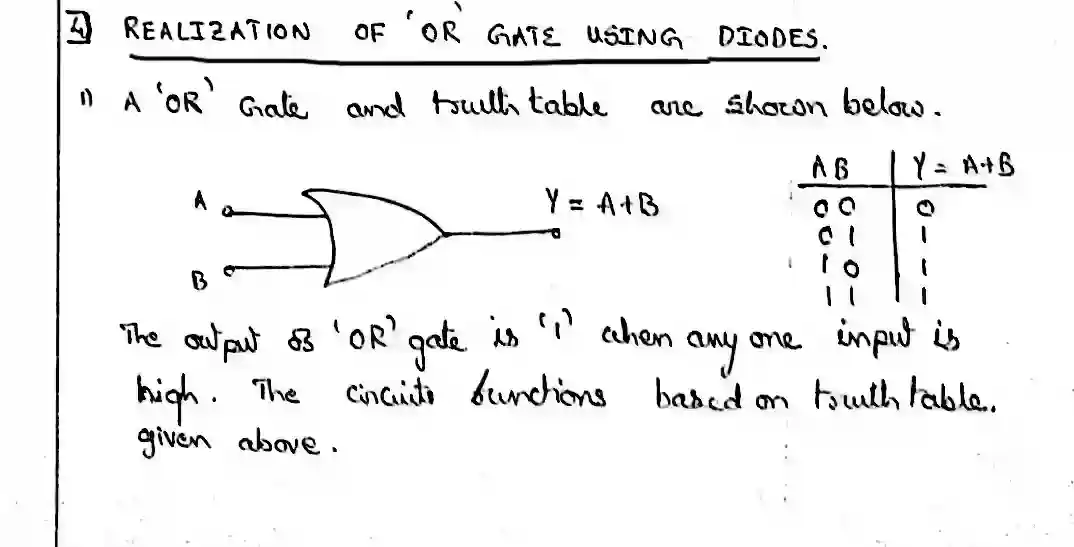 4] REALIZATION OF 'OR' GATE USING DIODES.
1) A 'OR' Gate and truth table are shown below.
A B | Y = A+B
0 0 | 0
0 1 | 1
1 0 | 1
1 1 | 1
A
B
Y = A+B
The output of 'OR' gate is '1' when any one input is
high. The circuits functions based on truth table.
given above.